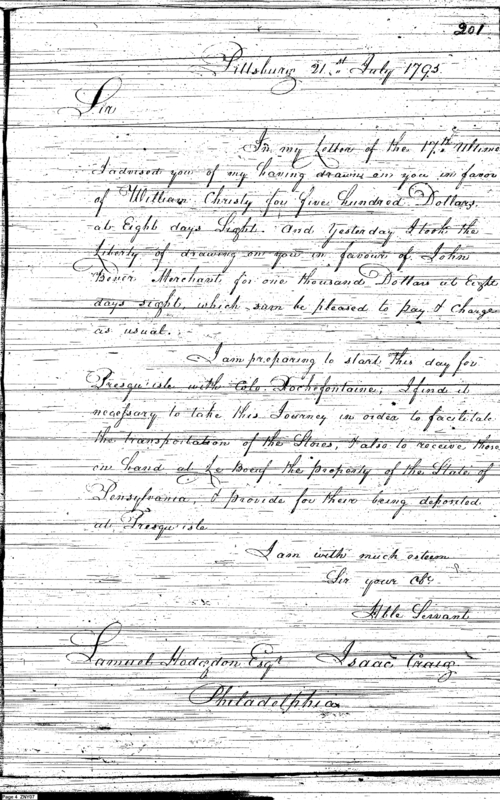 201
Pittsburg 21st July 1795
Sir
In my Letter of the 17th Ultimo
I advised you of my having drawn on you in favor
of William Christy for five hundred Dollars,
at Eight days Sight. And Yesterday I took the
Liberty of drawing on you in favour of John
Bever Merchant, for one thousand Dollars at Eight
days sight, which sum be pleased to pay & Charge
as usual.
I am preparing to start this day for
Presqu'isle with Colo. Rochefontaine; I find it
necessary to take this Journey in order to facilitate
the transportation of the Stores, & also to receive those
on hand at Le Boeuf the property of the State of
Pensylvania, & provide for their being deposited
at Presqu'isle
I am with much esteem
Sir your Obt
Hble Servant
Isaac Craig
Samuel Hodgdon Esqr
Philadelphia